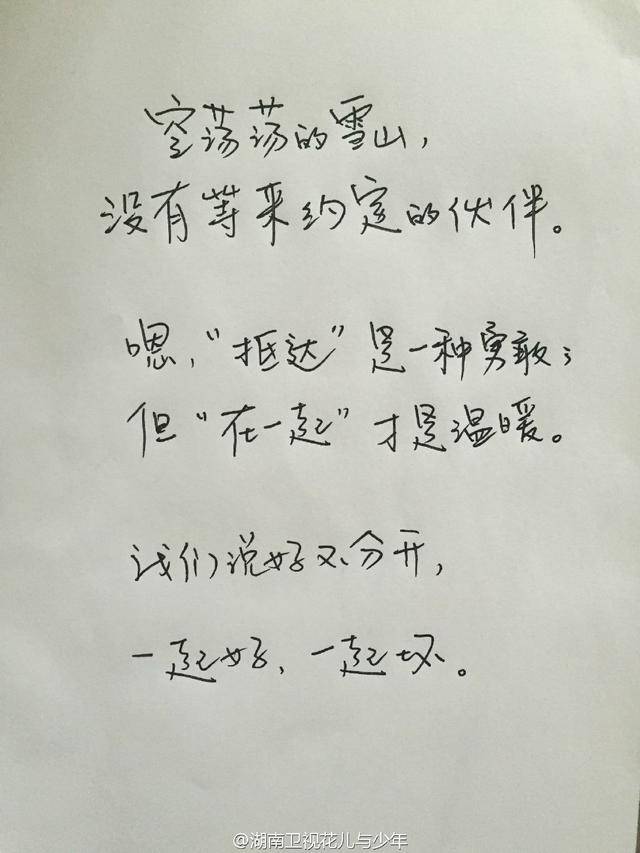 空荡荡的雪山，
没有等来约定的伙伴。
嗯，“抵达”是一种勇敢；
但“在一起”才是温暖。
我们说好不分开，
一起好，一起坏。
@湖南卫视花儿与少年